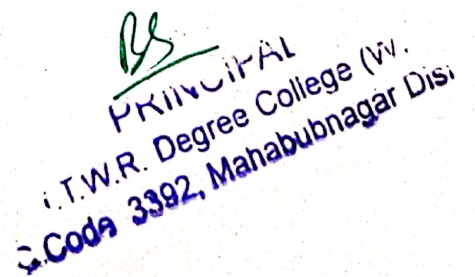 PRINCIPAL
.T.W.R. Degree College (W.
C.Code 3392, Mahabubnagar Dist